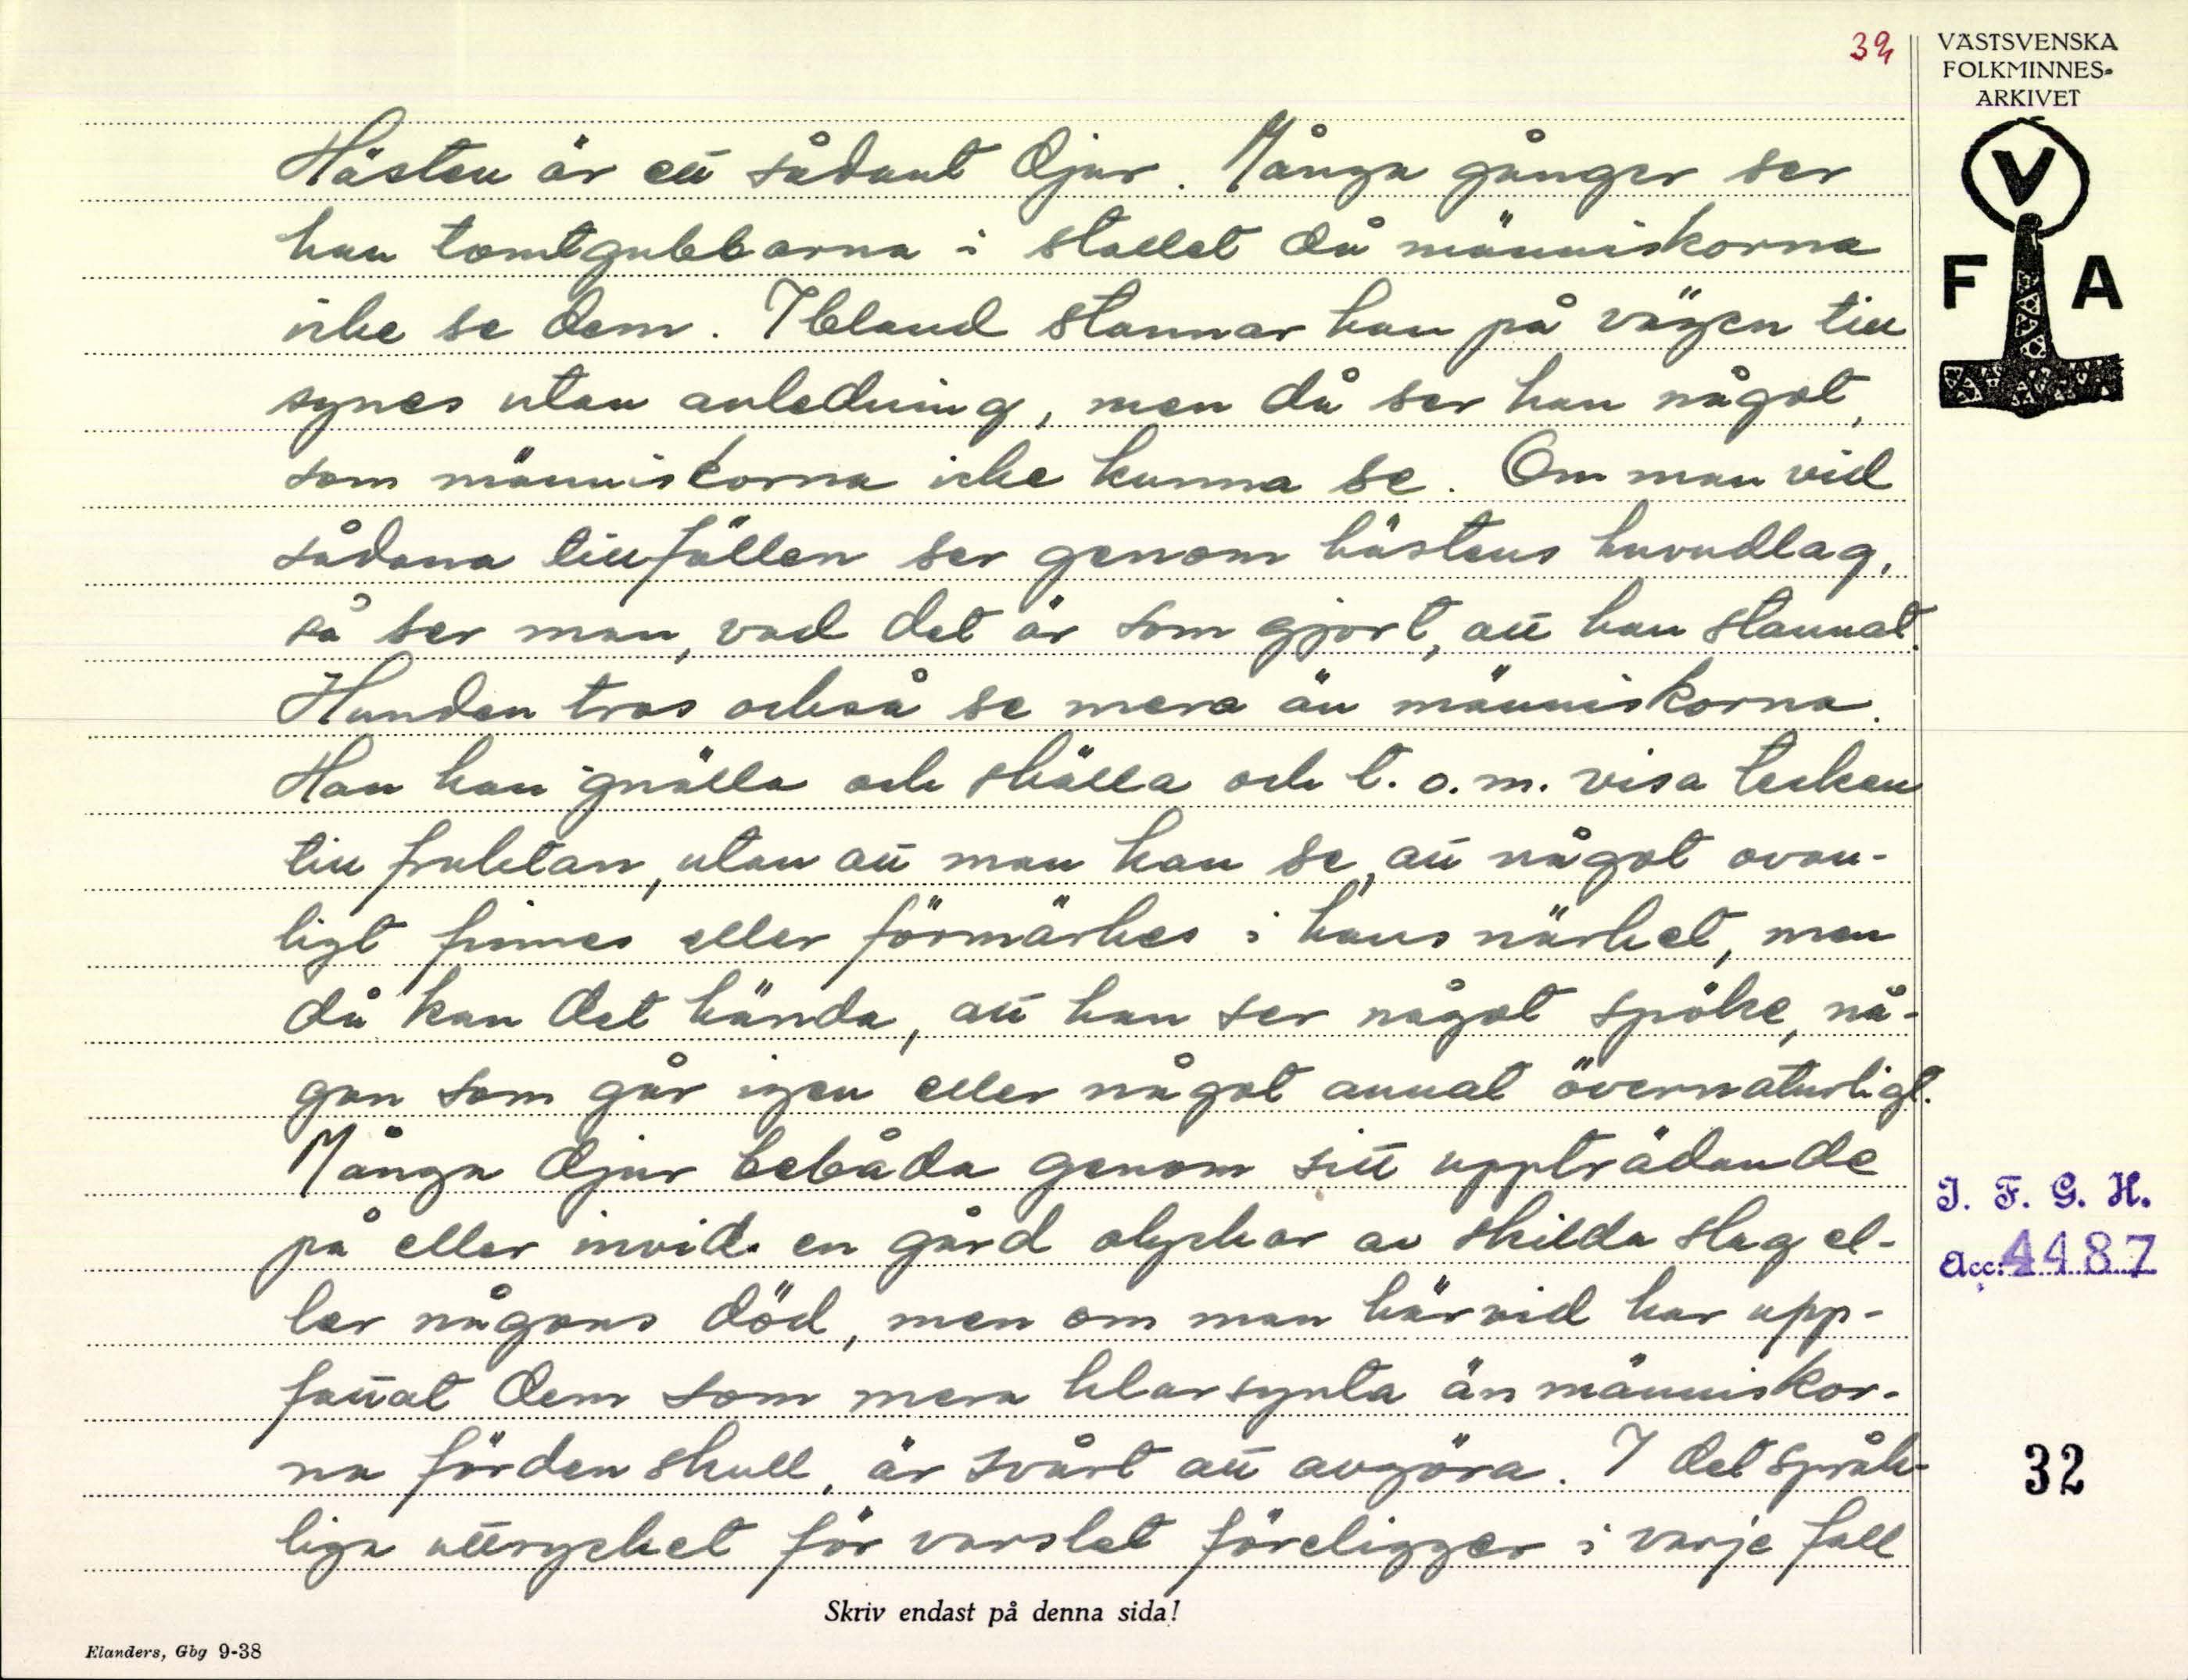 32
VÄSTSVENSKA
FOLKMINNES-
ARKIVET
V
F A
Hästen är ett sådant djur. Många gånger ser
han tomtgubbarna i stallet då människorna
icke se dem. Ibland stannar han på vägen till
synes utan anledning, men då ser han något,
som människorna icke kunna se. Om man vid
sådana tillfällen ser genom hästens huvudlag,
så ser man, vad det är som gjort, att han stannat.
Hunden tros också se mera än människorna.
Han kan gnälla och skälla och t.o.m. visa tecken
till fruktan, utan att man kan se, att något ovan-
ligt finnes eller förmärkes i hans närhet, men
då kan det hända, att han ser något spöke, nå-
gon som går igen eller något annat övernaturligt.
Många djur bebåda genom sitt uppträdande
på eller invid en gård olyckor av skilda slag el-
ler någons död, men om man härvid har upp-
fattat dem som mera klarsynta än människor-
na förden skull, är svårt att avgöra. I det språk-
liga uttrycket för varslet föreligger i varje fall
I. F. G. H.
Acc: 4487
32
Skriv endast på denna sida!
Elanders, Gbg 9-38